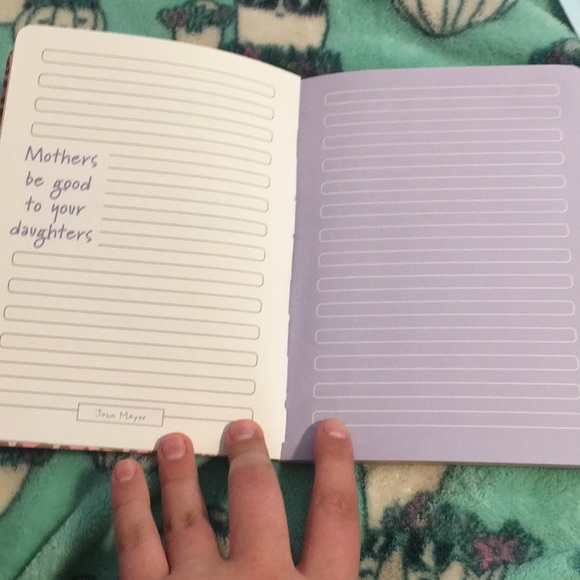 Mothers
be good
to your
daughters
John Mayer